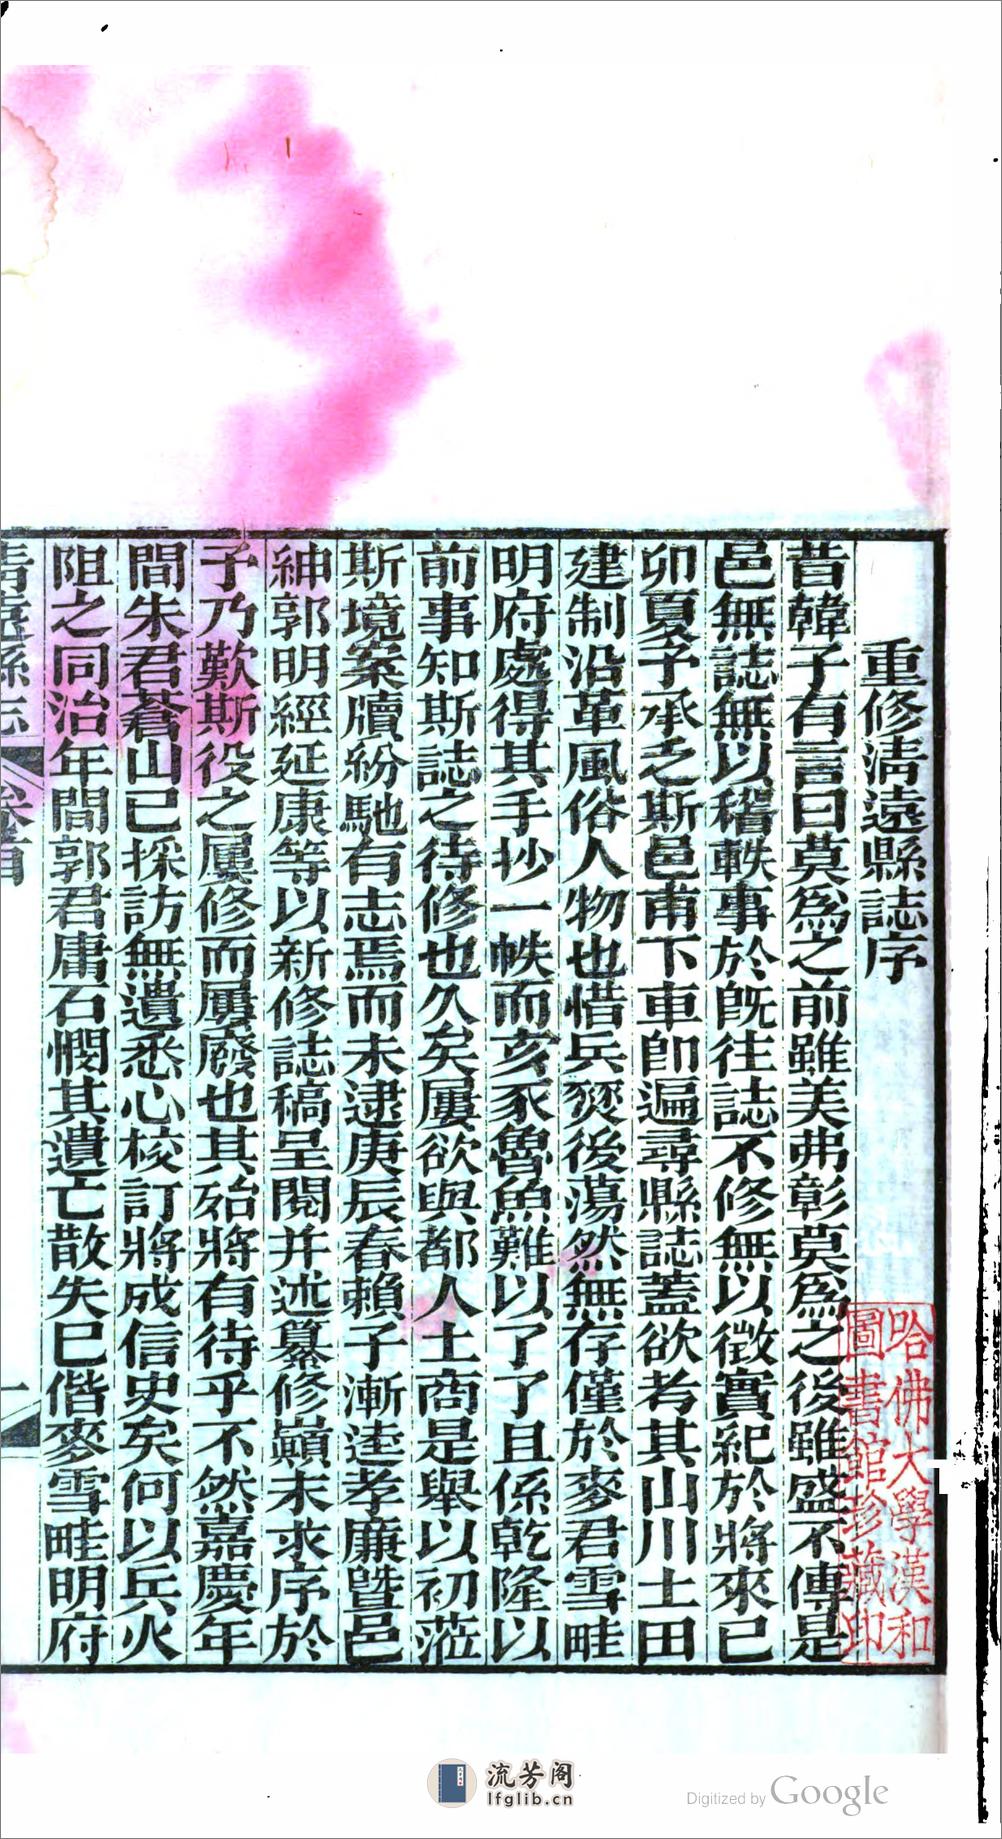 重修淸遠縣誌序
昔韓子有言曰莫爲之前雖美弗彰莫爲之後雖盛不傳是
邑無誌無以稽軼事於旣往誌不修無以徵實紀於將來已
卯夏予承乏斯邑甫下車卽遍尋縣誌蓋欲考其山川土田
建制沿革風俗人物也惜兵燹後蕩然無存僅於麥君雪畦
明府處得其手抄一帙而亥豕魯魚難以了了且係乾隆以
前事知斯誌之待修也久矣屢欲與都人士商是舉以初蒞
斯境案牘紛馳有志焉而未逮庚辰春賴子漸逵孝廉曁邑
紳郭明經延康等以新修誌稿呈閱并述纂修巔末求序於
子乃歎斯役之屢修而屢廢也其殆將有待乎不然嘉慶年
間朱君蒼山已採訪無遺悉心校訂將成信史矣何以兵火
阻之同治年間郭君庸石憫其遺亡散失已偕麥雪畦明府
清遠縣志
卷首
一
哈佛大學漢和
圖書館珍藏印
流芳阁
lfglib.cn
Digitized by Google